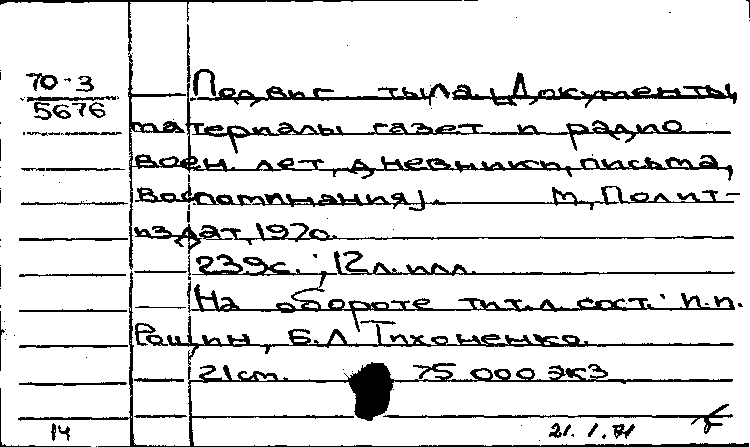 70-3
5676
Подвиг тыла. [Документы,
материалы газет и радио
воен. лет, дневники, письма,
воспоминания]. М., Полит-
издат, 1970.
239с.; 12 л. илл.
На обороте тит. л. сост.: И.И.
Рощин, Б.Л. Тихоненко.
21 см. 75 000 экз
14 21.1.71